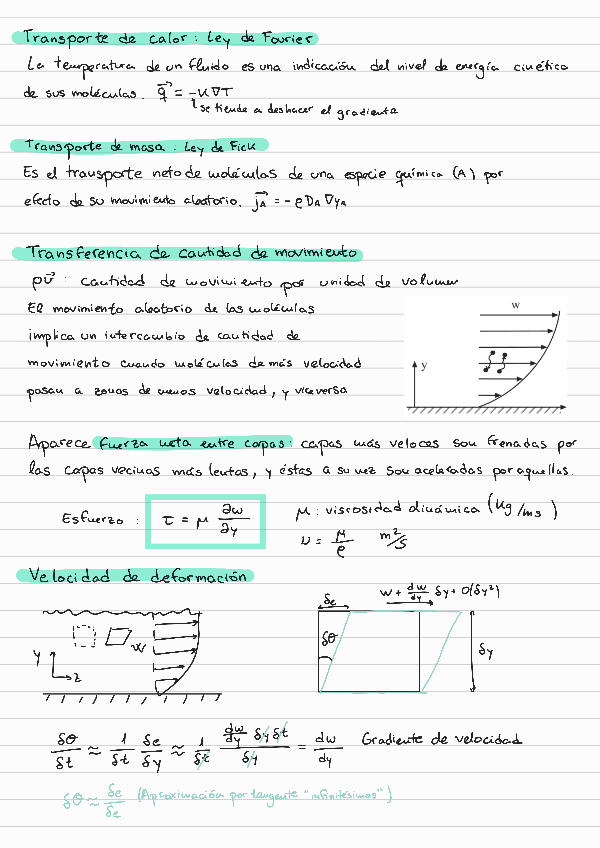 Transporte de calor: Ley de Fourier
La temperatura de un fluido es una indicación del nivel de energía cinética
de sus moléculas. q⃗ = -K∇T
se tiende a deshacer el gradiente
Transporte de masa: Ley de Fick
Es el transporte neto de moléculas de una especie química (A) por
efecto de su movimiento aleatorio. j⃗A = -ρ DA ∇yA
Transferencia de cantidad de movimiento
ρv⃗ : cantidad de movimiento por unidad de volumen
El movimiento aleatorio de las moléculas
implica un intercambio de cantidad de
movimiento cuando moléculas de más velocidad
pasan a zonas de menos velocidad, y viceversa
w
y
Aparece fuerza neta entre capas: capas más veloces son frenadas por
las capas vecinas más lentas, y éstas a su vez son aceleradas por aquellas.
Esfuerzo: τ = μ ∂w/∂y
μ: viscosidad dinámica (kg/ms)
ν = μ/ρ m²/s
Velocidad de deformación
y
z
w
δe
w + dw/dy δy + O(δy²)
δθ
δy
δθ/δt ≈ 1/δt δe/δy ≈ 1/δt (dw/dy δy δt)/δy = dw/dy Gradiente de velocidad
δθ ≈ δe/δe (Aproximación por tangente "infinitésimos")